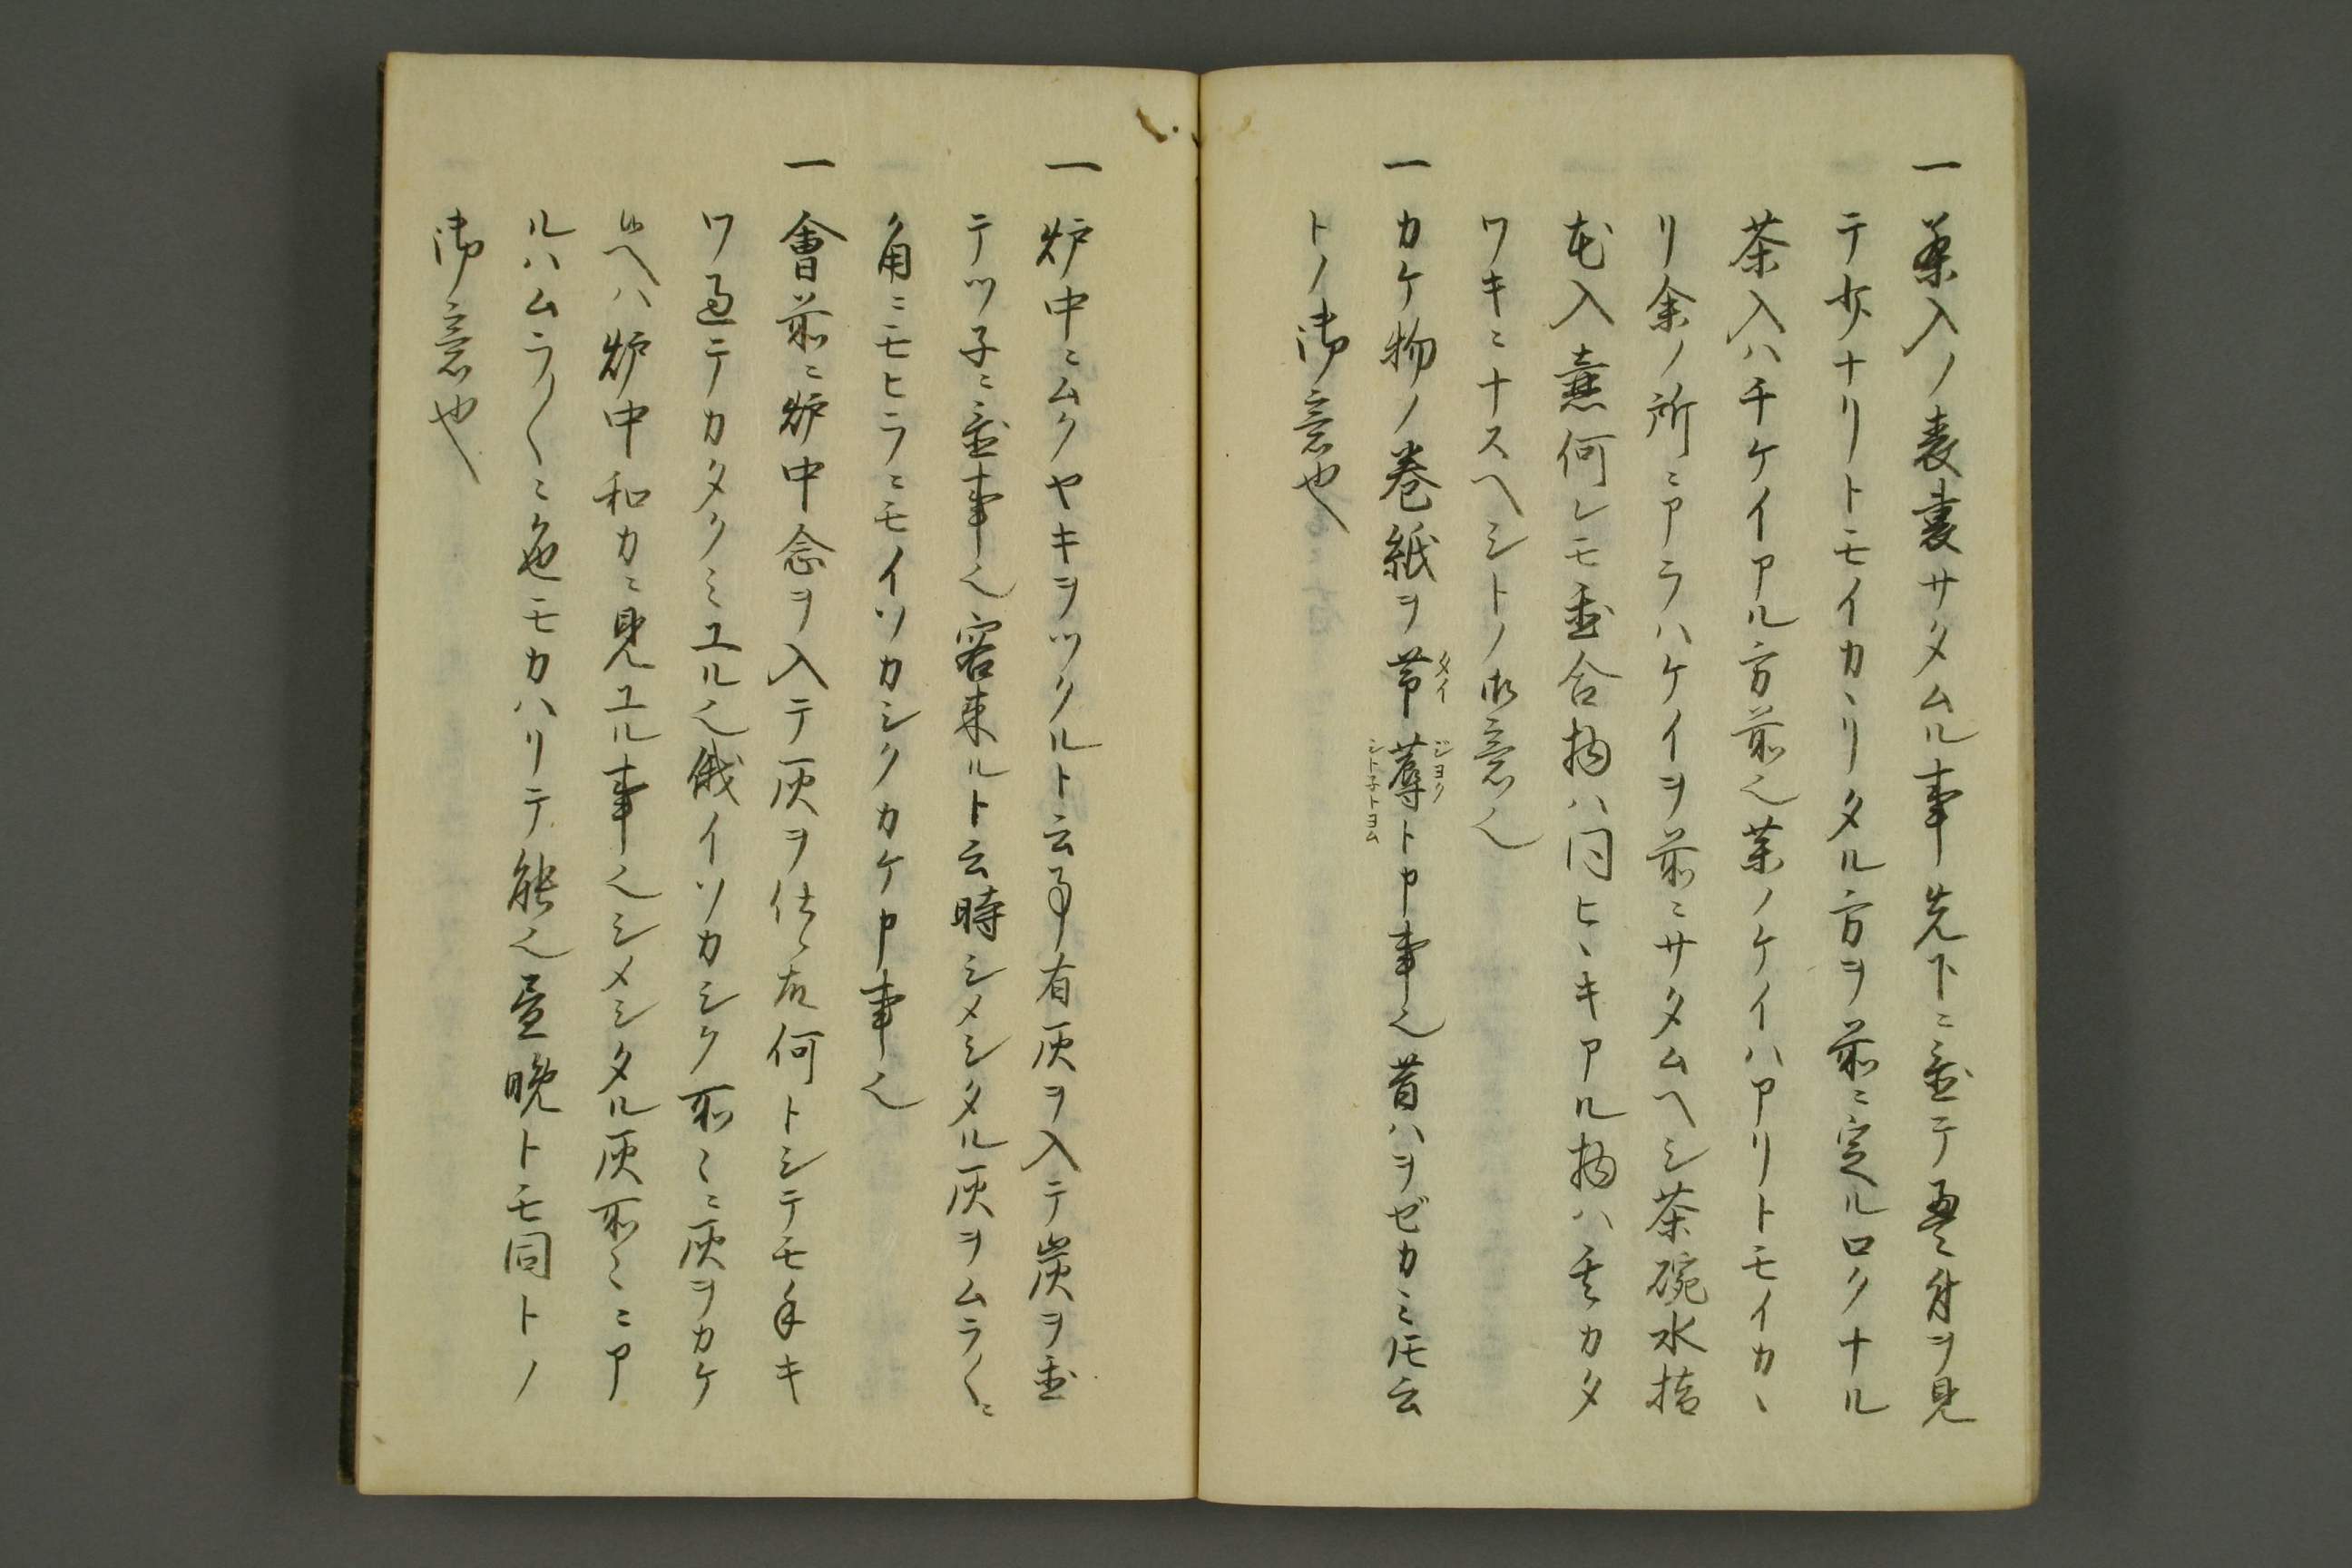 一 茶入ノ表裏サタムル事先下ニ置テ臺付ヲ見
テ少ナリトモイカヽリタル方ヲ前ニ定ルロクナル
茶入ハチケイアル方前也茶ノケイハアリトモイカヽ
リ余ノ所ニアラハケイヲ前ニサタムヘシ茶碗水指
花入壷何レモ置合物ハ同ヒヽキアル物ハ其カタ
ワキニナスヘシトノ御意也
一 カケ物ノ巻紙ヲ帯タイ蓐ジヨクシト子トヨムト申事也昔ハヲゼカミ𪜈云
トノ御意也
一 炉中ニムクヤキヲツクルト云事有灰ヲ入テ炭ヲ置
テツ子ニ置事也客来ルト云時シメシタル灰ヲムラ〱ニ
角ニモヒラニモイソカシクカケ申事也
一 會前ニ炉中念ヲ入テ灰ヲ仕候何トシテモキ
ワ過テカタクミユル也俄イソカシク所〻ニ灰ヲカケ
候ヘハ炉中和カニ見ユル事也シメシタル灰所〻ニア
ルハムラ〱ニ色モカハリテ能也昼晩トモ同トノ
御意也